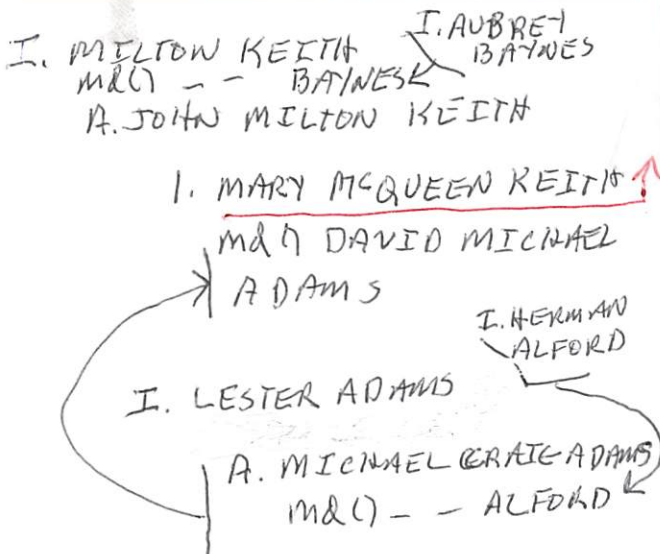 I. MILTON KEITH
I. AUBREY
BAYNES
md() - - BAYNES
A. JOHN MILTON KEITH
1. MARY McQUEEN KEITH
md() DAVID MICHAEL
ADAMS
I. HERMAN
ALFORD
I. LESTER ADAMS
A. MICHAEL CRAIG ADAMS
md() - - ALFORD